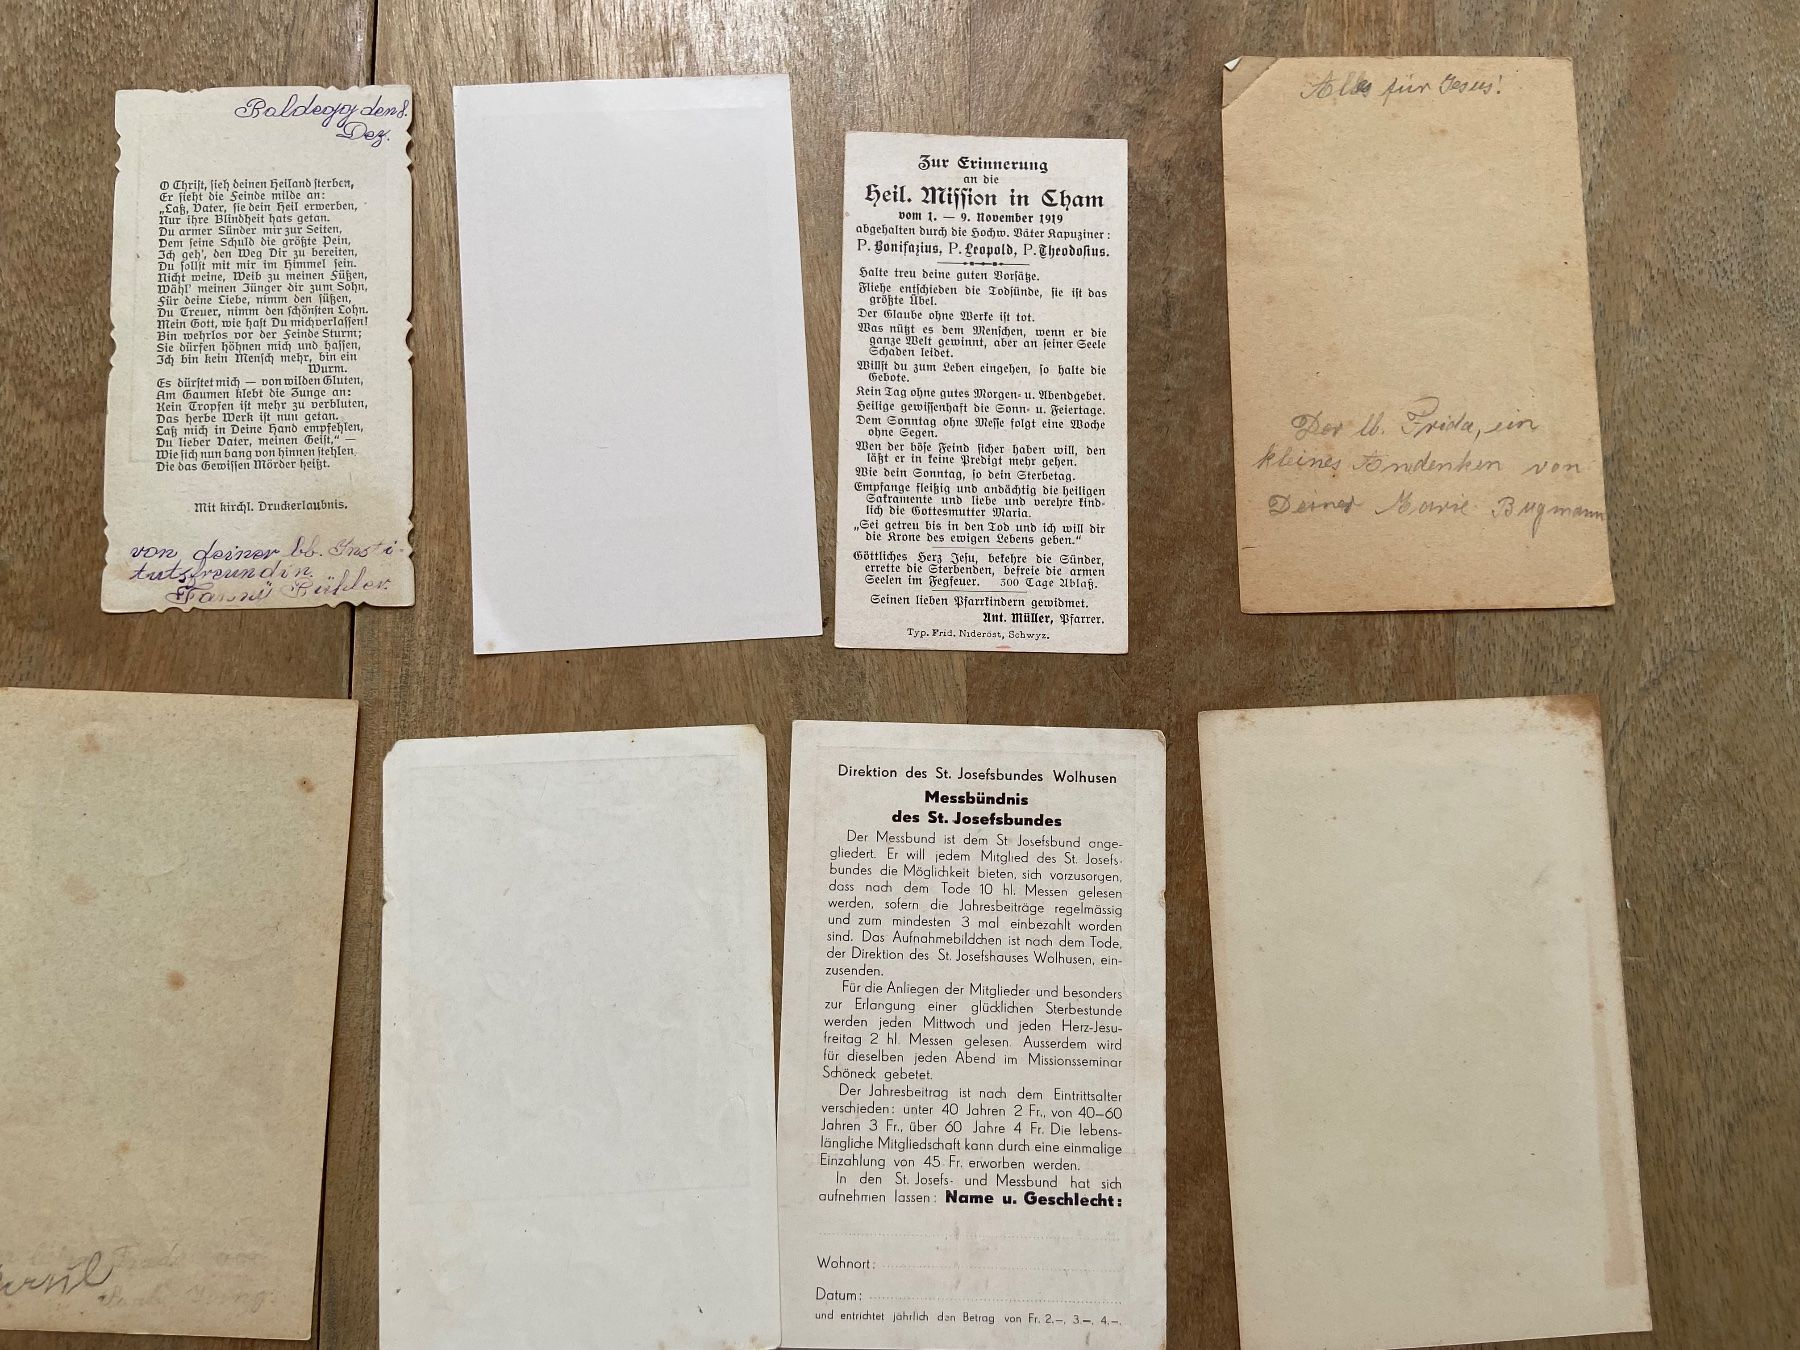 Baldegg den 8.
Dez.
O Christ, sieh deinen Heiland sterben,
Er sieht die Feinde milde an:
„Laß, Vater, sie dein Heil erwerben,
Nur ihre Blindheit hats getan.
Du armer Sünder mir zur Seiten,
Dem seine Schuld die größte Pein,
Ich geh', den Weg Dir zu bereiten,
Du sollst mit mir im Himmel sein.
Nicht weine, Weib zu meinen Füßen,
Wähl' meinen Jünger dir zum Sohn,
Für deine Liebe, nimm den süßen,
Du Treuer, nimm den schönsten Lohn.
Mein Gott, wie hast Du mich verlassen!
Bin wehrlos vor der Feinde Sturm;
Sie dürfen höhnen mich und hassen,
Ich bin kein Mensch mehr, bin ein
Wurm.
Es dürstet mich — von wilden Gluten,
Am Gaumen klebt die Zunge an:
Kein Tropfen ist mehr zu verbluten,
Das herbe Werk ist nun getan.
Laß mich in Deine Hand empfehlen,
Du lieber Vater, meinen Geist,“ —
Wie sich nun bang von hinnen stehlen,
Die das Gewissen Mörder heißt.
Mit kirchl. Druckerlaubnis.
von deiner lb. Insti-
tutsfreundin
Zur Erinnerung
an die
Heil. Mission in Cham
vom 1. — 9. November 1919
abgehalten durch die Hochw. Väter Kapuziner:
P. Bonifazius, P. Leopold, P. Theodosius.
Halte treu deine guten Vorsätze.
Fliehe entschieden die Todsünde, sie ist das
größte Übel.
Der Glaube ohne Werke ist tot.
Was nützt es dem Menschen, wenn er die
ganze Welt gewinnt, aber an seiner Seele
Schaden leidet.
Willst du zum Leben eingehen, so halte die
Gebote.
Kein Tag ohne gutes Morgen- u. Abendgebet.
Heilige gewissenhaft die Sonn- u. Feiertage.
Dem Sonntag ohne Messe folgt eine Woche
ohne Segen.
Wen der böse Feind sicher haben will, den
läßt er in keine Predigt mehr gehen.
Wie dein Sonntag, so dein Sterbetag.
Empfange fleißig und andächtig die heiligen
Sakramente und liebe und verehre kind-
lich die Gottesmutter Maria.
„Sei getreu bis in den Tod und ich will dir
die Krone des ewigen Lebens geben.“
Göttliches Herz Jesu, bekehre die Sünder,
errette die Sterbenden, befreie die armen
Seelen im Fegfeuer. 300 Tage Ablaß.
Seinen lieben Pfarrkindern gewidmet.
Ant. Müller, Pfarrer.
Typ. Frid. Nideröst, Schwyz.
Alles für Jesus!
Der lb. Frida, ein
kleines Andenken von
Deiner Marie Bugmann
Direktion des St. Josefsbundes Wolhusen
Messbündnis
des St. Josefsbundes
Der Messbund ist dem St Josefsbund ange-
gliedert. Er will jedem Mitglied des St. Josefs-
bundes die Möglichkeit bieten, sich vorzusorgen,
dass nach dem Tode 10 hl. Messen gelesen
werden, sofern die Jahresbeiträge regelmässig
und zum mindesten 3 mal einbezahlt worden
sind. Das Aufnahmebildchen ist nach dem Tode,
der Direktion des St. Josefshauses Wolhusen, ein-
zusenden.
Für die Anliegen der Mitglieder und besonders
zur Erlangung einer glücklichen Sterbestunde
werden jeden Mittwoch und jeden Herz-Jesu-
freitag 2 hl. Messen gelesen. Ausserdem wird
für dieselben jeden Abend im Missionsseminar
Schöneck gebetet.
Der Jahresbeitrag ist nach dem Eintrittsalter
verschieden: unter 40 Jahren 2 Fr., von 40–60
Jahren 3 Fr., über 60 Jahre 4 Fr. Die lebens-
längliche Mitgliedschaft kann durch eine einmalige
Einzahlung von 45 Fr. erworben werden.
In den St. Josefs- und Messbund hat sich
aufnehmen lassen: Name u. Geschlecht:
Wohnort:
Datum:
und entrichtet jährlich den Betrag von Fr. 2.–, 3.–, 4.–.